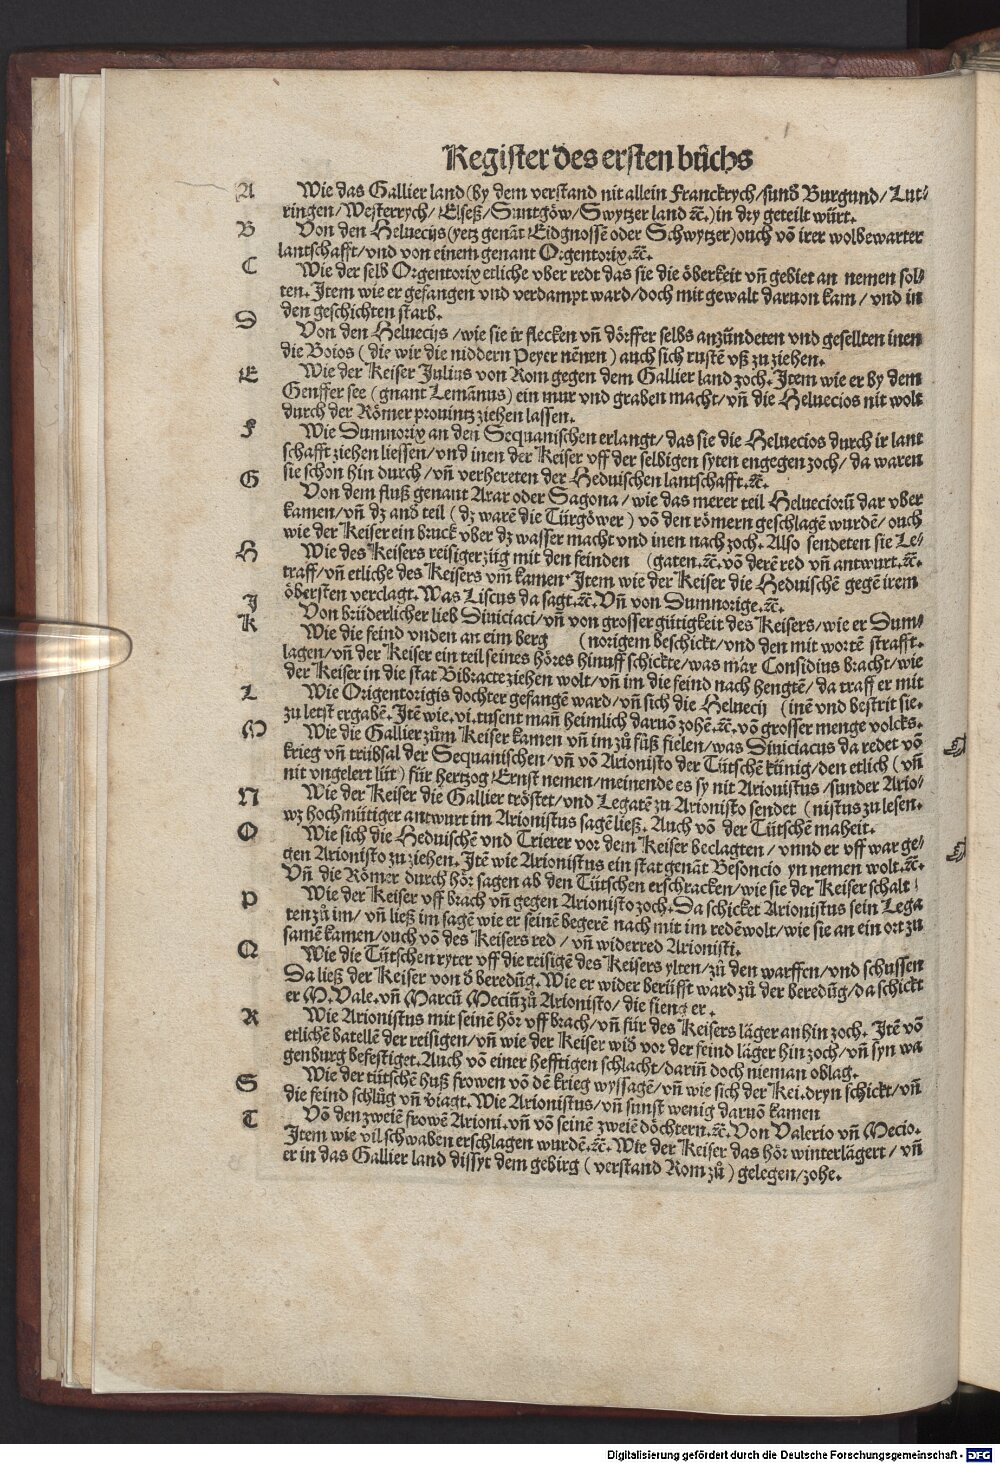 Register des ersten bůchs
A Wie das Gallier land (by dem verstand nit allein Franckrych/sund̃ Burgund/Lut⸗
ringen/Westerrych/Elseß/Suntgöw/Swytzer land ⁊c̃.) in dry geteilt würt.
B Von den Heluecijs (yetz genãt Eidgnossẽ oder Schwytzer) ouch võ irer wolbewarter
lantschafft/vnd von einem genant Orgentorix.⁊c̃.
C Wie der selb Orgentorix etliche vber redt das sie die öberkeit vñ gebiet an nemen sol⸗
ten. Item wie er gefangen vnd verdampt ward/doch mit gewalt daruon kam / vnd in
den geschichten starb.
D Von den Heluecijs /wie sie ir flecken vñ dörffer selbs anzündeten vnd gesellten inen
die Boios ( die wir die niddern Peyer nẽnen ) auch sich rustẽ vß zu ziehen.
E Wie der Keiser Julius von Rom gegen dem Gallier land zoch. Item wie er by dem
Genffer see ( gnant Lemãnus) ein mur vnd graben macht/vñ die Heluecios nit wolt
durch der Römer prouintz ziehen lassen.
F Wie Dumnorix an den Sequanischen erlangt/das sie die Heluecios durch ir lant
schafft ziehen liessen/vnd inen der Keiser vff der selbigen syten engegen zoch/da waren
sie schon hin durch/vñ verhereten der Heduischen lantschafft.⁊c̃.
G Von dem fluß genant Arar oder Sagona/wie das merer teil Helueciorũ dar vber
kamen/vñ dz and̃ teil ( dz warẽ die Türgöwer) võ den römern geschlagẽ wurdẽ/ouch
wie der Keiser ein bruck vber dz wasser macht vnd inen nach zoch. Also sendeten sie Le⸗
H Wie des Keisers reisiger züg mit den feinden (gaten.⁊c̃. võ derẽ red vñ antwurt.⁊c̃.
traff/vñ etliche des Keisers vm̃ kamen. Item wie der Keiser die Heduischẽ gegẽ irem
öbersten verclagt. Was Liscus da sagt.⁊c̃. Vñ von Dumnorige.⁊c̃.
J Von brüderlicher lieb Diniciaci/vñ von grosser gütigkeit des Keisers/wie er Dum⸗
K Wie die feind vnden an eim berg (norigem beschickt/vnd den mit wortẽ strafft.
lagen/vñ der Keiser ein teil seines höres hinuff schickte/was mär Considius bracht/wie
der Keiser in die stat Bibracte ziehen wolt/vñ im die feind nach hengtẽ/da traff er mit
L Wie Origentorigis dochter gefangẽ ward/vñ sich die Heluecij (inẽ vnd bestrit sie.
zu letst ergabẽ. Itẽ wie.vi.tusent mañ heimlich daruõ zohẽ.⁊c̃. võ grosser menge volcks.
M Wie die Gallier zům Keiser kamen vñ im zů fůß fielen/was Diniciacus da redet võ
krieg vñ trübsal der Sequanischen/vñ võ Arionisto der Tütschẽ künig/den etlich (vñ
nit vngelert lüt) für hertzog Ernst nemen/meinende es sy nit Arionistus/sunder Ario⸗
N Wie der Keiser die Gallier tröstet/vnd Legatẽ zu Arionisto sendet (nistus zu lesen.
wz hochmütiger antwurt im Arionistus sagẽ ließ. Auch võ der Tütschẽ maheit.
O Wie sich die Heduischẽ vnd Trierer vor dem Keiser beclagten / vnnd er vff war ge⸗
gen Arionisto zu ziehen. Itẽ wie Arionistus ein stat genãt Besoncio yn nemen wolt.⁊c̃.
Vñ die Römer durch hör sagen ab den Tütschen erschracken/wie sie der Keiser schalt
P Wie der Keiser vff brach vñ gegen Arionisto zoch. Da schicket Arionistus sein Lega
ten zů im/ vñ ließ im sagẽ wie er seinẽ begerẽ nach mit im redẽ wolt/wie sie an ein ort zu
samẽ kamen/ouch võ des Keisers red / vñ widerred Arionisti.
Q Wie die Tütschen ryter vff die reisigẽ des Keisers ylten/zů den warffen/vnd schussen
Da ließ der Keiser von d̃ beredũg. Wie er wider berüfft ward zů der beredũg/da schickt
er M.Vale.vñ Marcũ Meciũ zů Arionisto/die fieng er.
R Wie Arionistus mit seinẽ hör vff brach/vñ für des Keisers läger anhin zoch. Itẽ võ
etlichẽ batellẽ der reisigen/vñ wie der Keiser wid̃ vor der feind läger hin zoch/vñ syn wa
genburg befestiget. Auch võ einer hefftigen schlacht/dariñ doch nieman oblag.
S Wie der tütschẽ huß frowen võ dẽ krieg wyssagẽ/vñ wie sich der Kei.dryn schickt/vñ
die feind schlůg vñ v̈iagt. Wie Arionistus/vñ sunst wenig daruõ kamen
T Võ den zweiẽ frowẽ Arioni.vñ võ seinẽ zweiẽ döchtern.⁊c̃. Von Valerio vñ Mecio.
Item wie vil schwaben erschlagen wurdẽ.⁊c̃. Wie der Keiser das hör winterlägert/ vñ
er in das Gallier land dissyt dem gebirg ( verstand Rom zů ) gelegen/zohe.
Digitalisierung gefördert durch die Deutsche Forschungsgemeinschaft - DFG